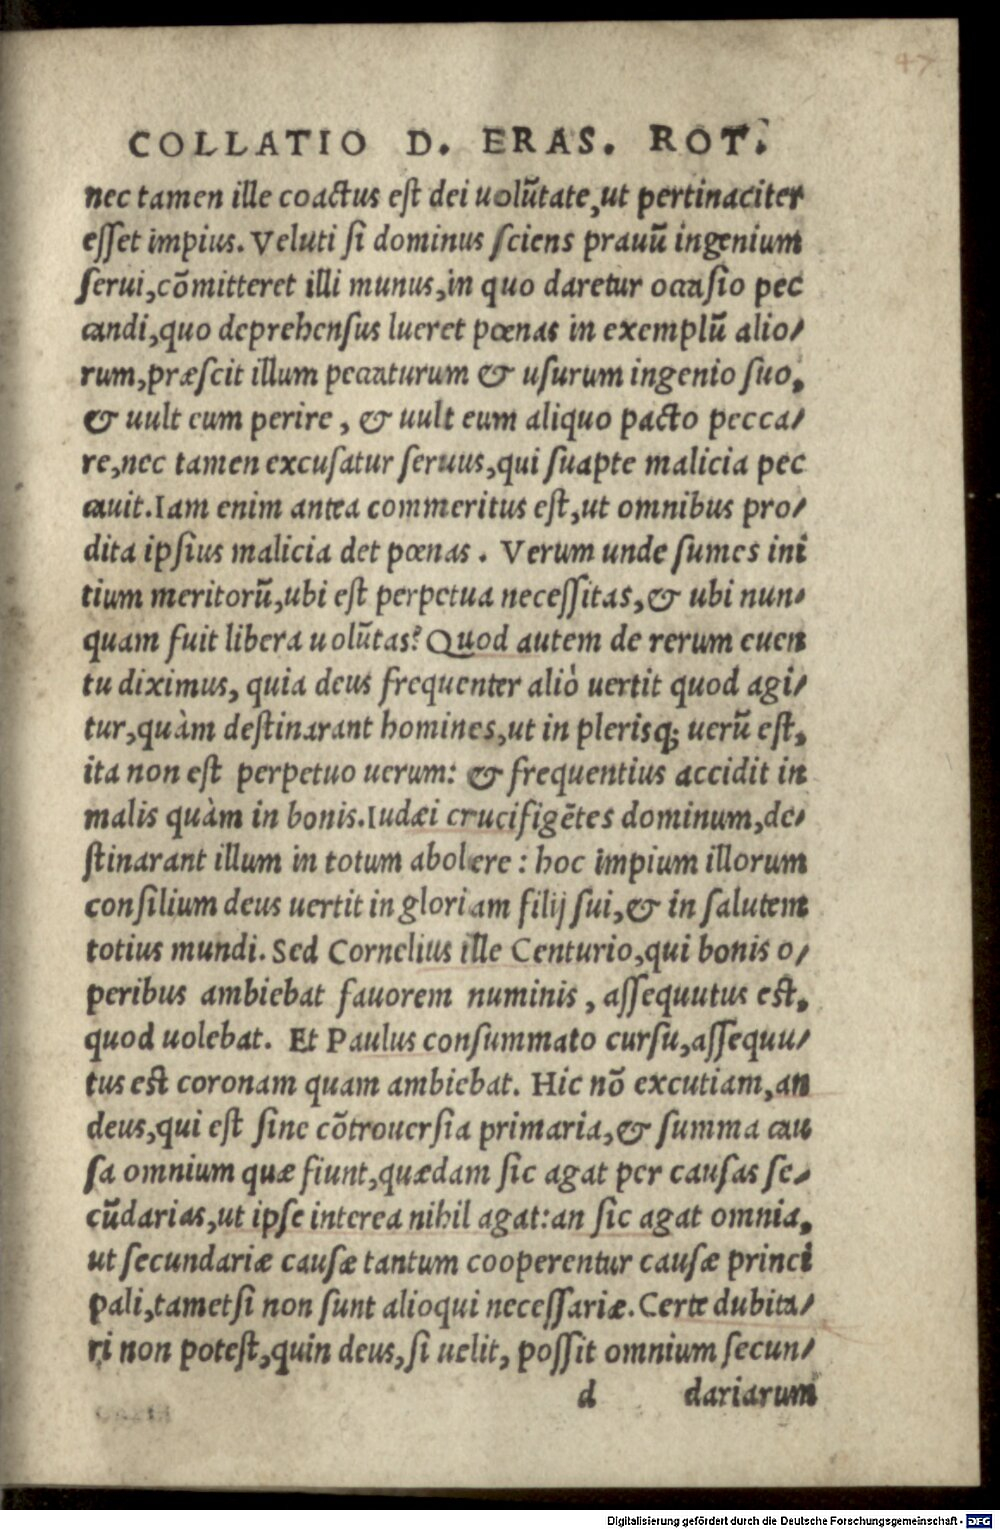 47
COLLATIO D. ERAS. ROT.
nec tamen ille coactus est dei uolũtate,ut pertinaciter
esset impius. Veluti si dominus sciens prauũ ingenium
serui,cõmitteret illi munus,in quo daretur occasio pec
candi,quo deprehensus lueret pœnas in exemplũ alio/
rum,præscit illum peccaturum & usurum ingenio suo,
& uult eum perire , & uult eum aliquo pacto pecca/
re,nec tamen excusatur seruus,qui suapte malicia pec
cauit.Iam enim antea commeritus est,ut omnibus pro/
dita ipsius malicia det pœnas . Verum unde sumes ini
tium meritorũ,ubi est perpetua necessitas,& ubi nun/
quam fuit libera uolũtas? Quod autem de rerum euen
tu diximus, quia deus frequenter aliò uertit quod agi/
tur,quàm destinarant homines,ut in plerisq; uerũ est,
ita non est perpetuo uerum: & frequentius accidit in
malis quàm in bonis.Iudæi crucifigẽtes dominum,de/
stinarant illum in totum abolere : hoc impium illorum
consilium deus uertit in gloriam filij sui,& in salutem
totius mundi. Sed Cornelius ille Centurio,qui bonis o/
peribus ambiebat fauorem numinis , assequutus est,
quod uolebat. Et Paulus consummato cursu,assequu/
tus est coronam quam ambiebat. Hic nõ excutiam,an
deus,qui est sine cõtrouersia primaria,& summa cau
sa omnium quæ fiunt,quædam sic agat per causas se/
cũdarias,ut ipse interea nihil agat:an sic agat omnia,
ut secundariæ causæ tantum cooperentur causæ princi
pali,tametsi non sunt alioqui necessariæ. Certe dubita/
ri non potest,quin deus,si uelit, possit omnium secun/
d dariarum
Digitalisierung gefördert durch die Deutsche Forschungsgemeinschaft - DFG